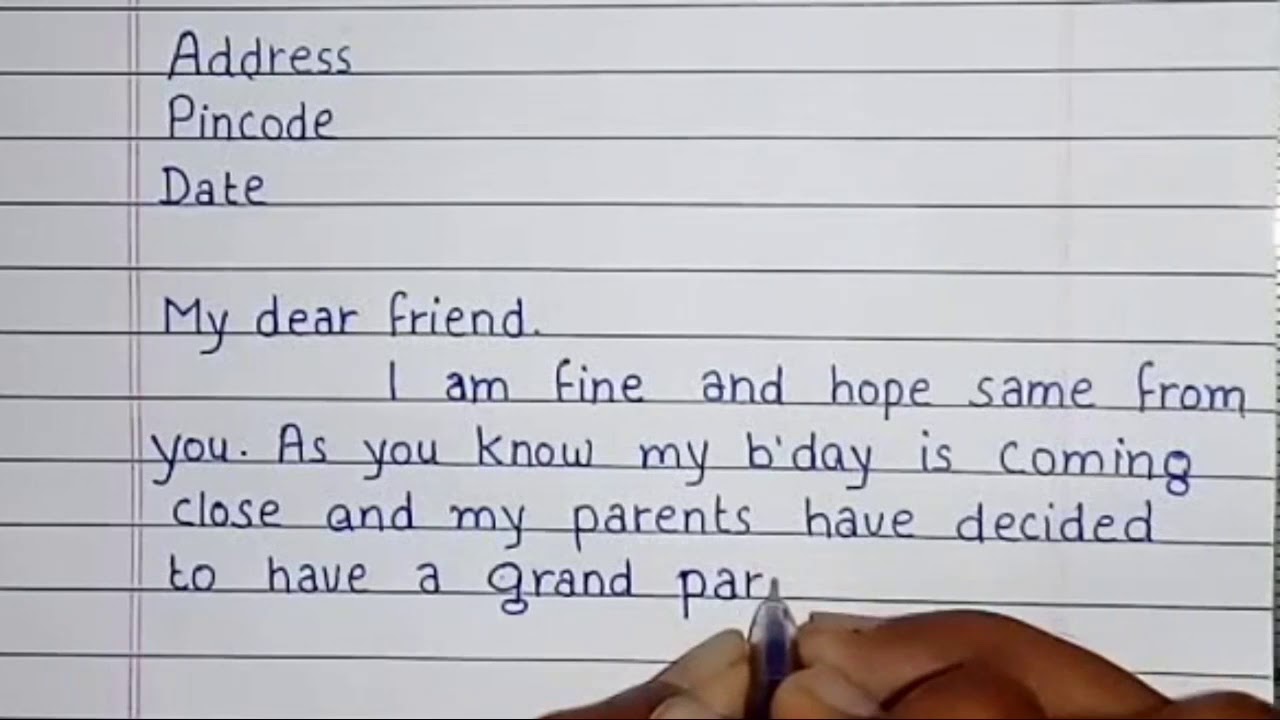 Address
Pincode
Date
My dear friend.
I am fine and hope same from
you. As you know my b'day is coming
close and my parents have decided
to have a grand par